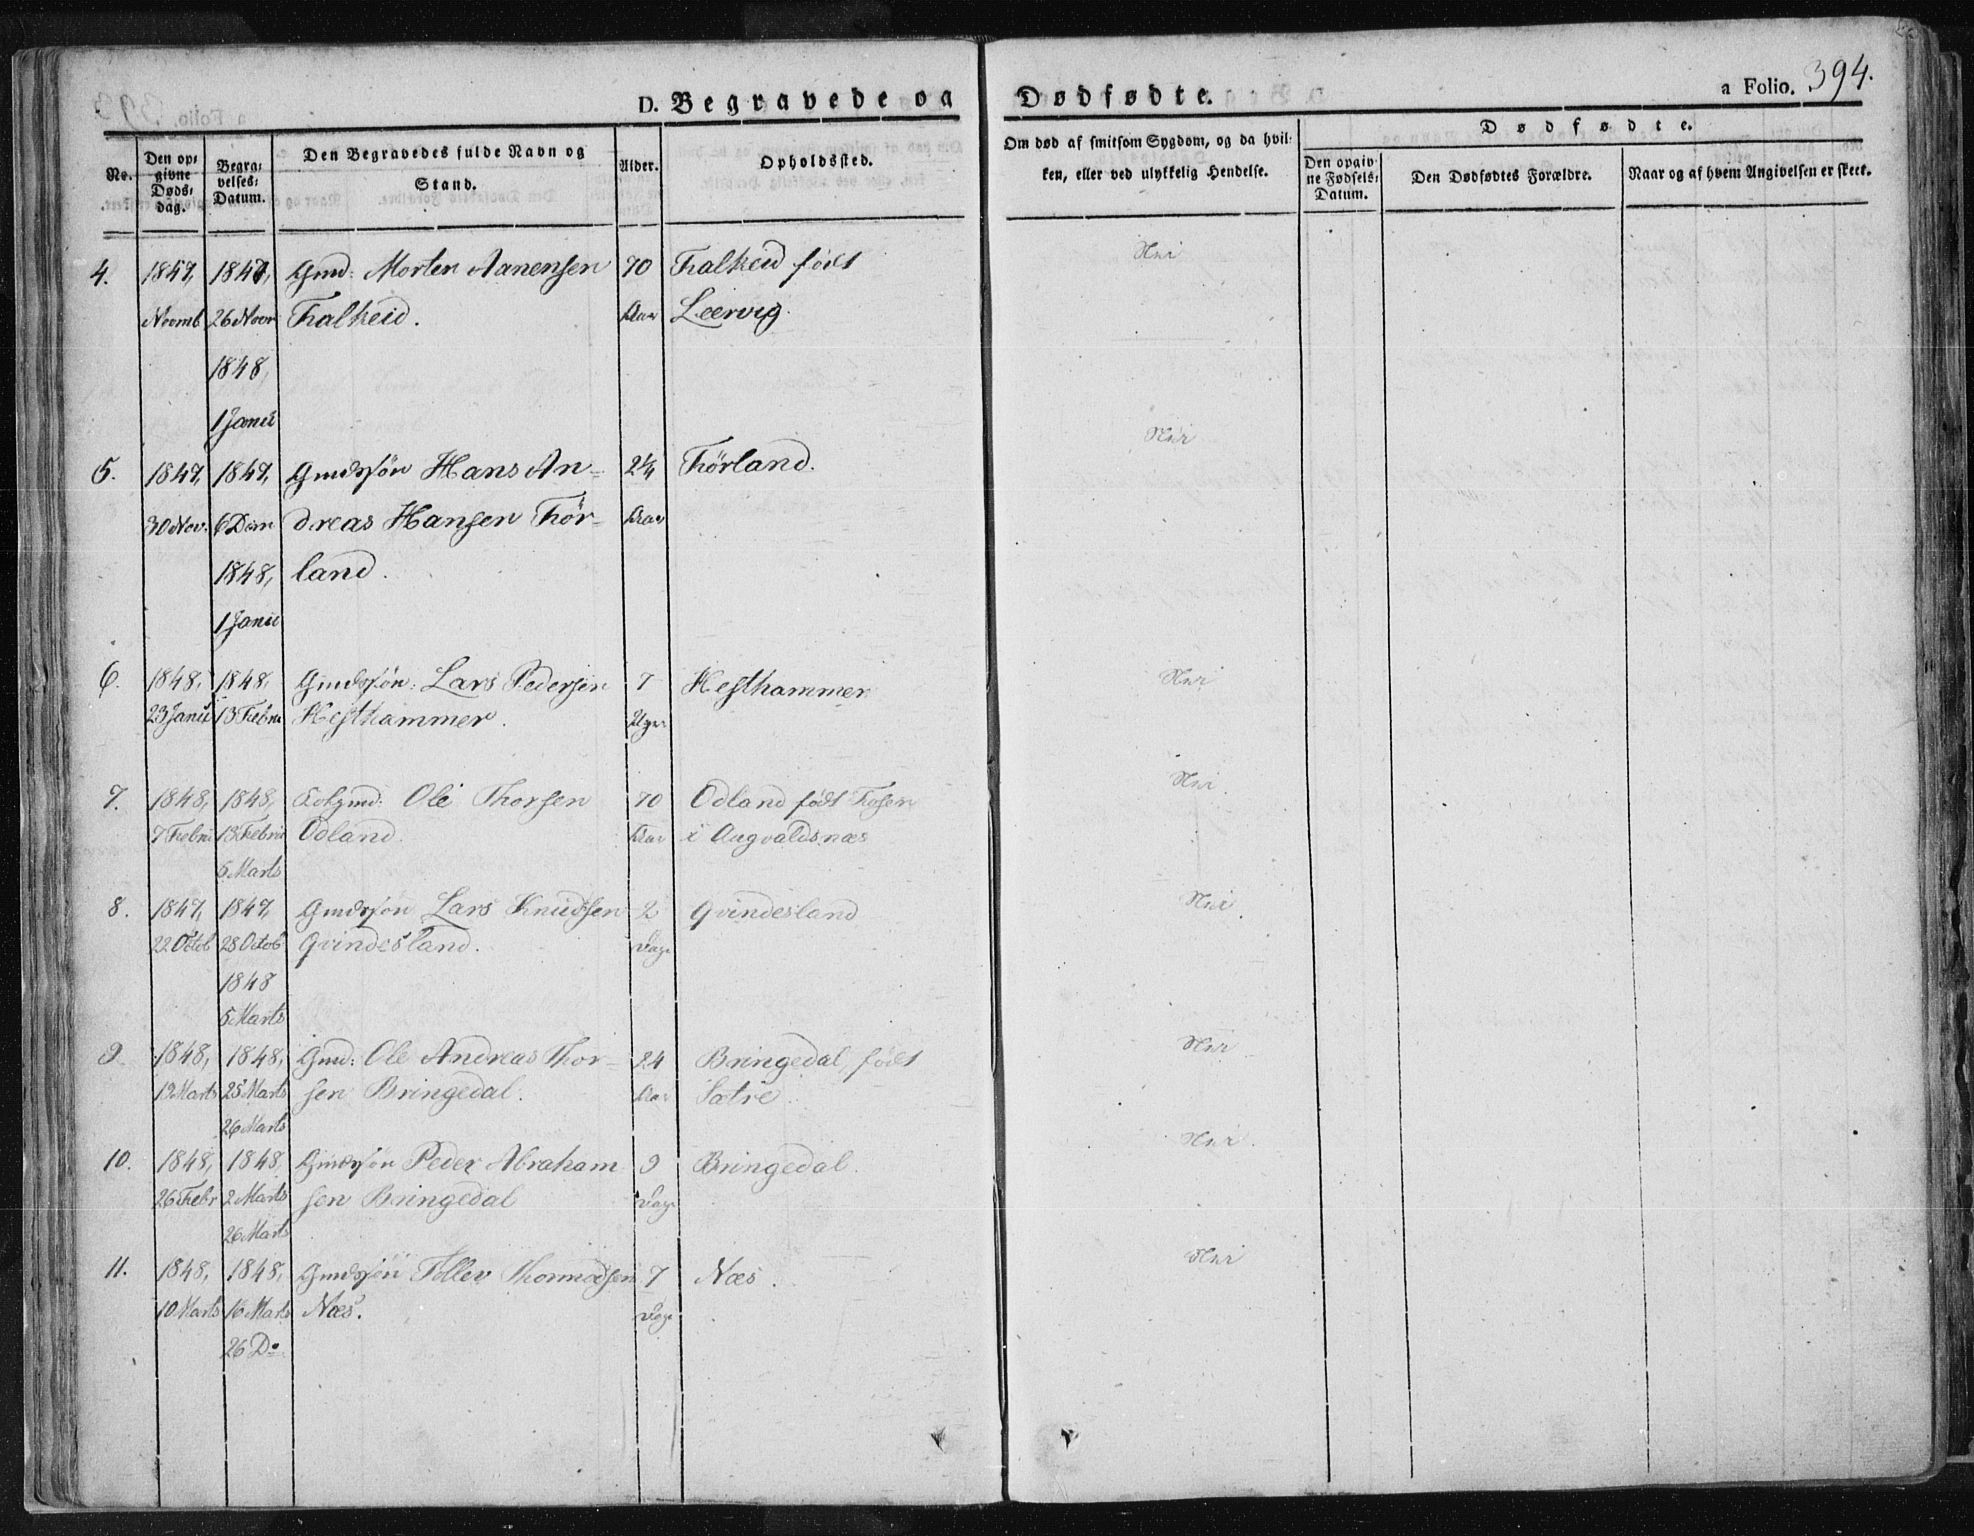 D. Begravede og Dødfødte. a Folio. 394.
No. Den opgivne Døds-dag. Begravelses-Datum. Den Begravedes fulde Navn og Stand. Alder. Opholdssted. Om død af smitsom Sygdom, og da hvilken, eller ved ulykkelig Hendelse. Dødfødte.
Den opgivne Fødsels-Datum. Den Dødfødtes Forældre. Naar og af hvem Angivelsen er skeet.
4. 1847, 1847, Gmd: Morten Aanensen 70 Falkeid født Nei
Novmb 26 Novr Falkeid. Aar Leervig.
1848,
1 Janu
5. 1847, 1847, Gmdssøn Hans An- 2¼ Førland. Nei
30 Nov. 6 Dcm dreas Hansen Før- Aar
1848, land.
1 Janu
6. 1848, 1848, Gmdssøn: Lars Pedersen 7 Hesthammer Nei
23 Janu 13 Febru Hesthammer. Uger
7. 1848, 1848, Gmd: Ole Thorsen 70 Odland født Fosen Nei
7 Febru 13 Febru Odland. Aar i Augvaldsnæs
5 Marts
8. 1847, 1847, Gmdssøn Lars Knudsen 2 Qvindesland Nei
22 Octob 28 Octob Qvindesland. Dage
1848
5 Marts
9. 1848, 1848, Gmd: Ole Andreas Thor- 24 Bringedal, født Nei
19 Marts 25 Marts sen Bringedal. Aar Sætre.
26 Marts
10. 1848, 1848, Gmdssøn Peder Abraham- 9 Bringedal. Nei.
26 Febr 2 Marts sen Bringedal Dage
26 Marts
11. 1848, 1848, Gmdssøn Tollev Thormodsen 7 Næs. Nei
10 Marts 16 Marts Næs. Dage
26 Do